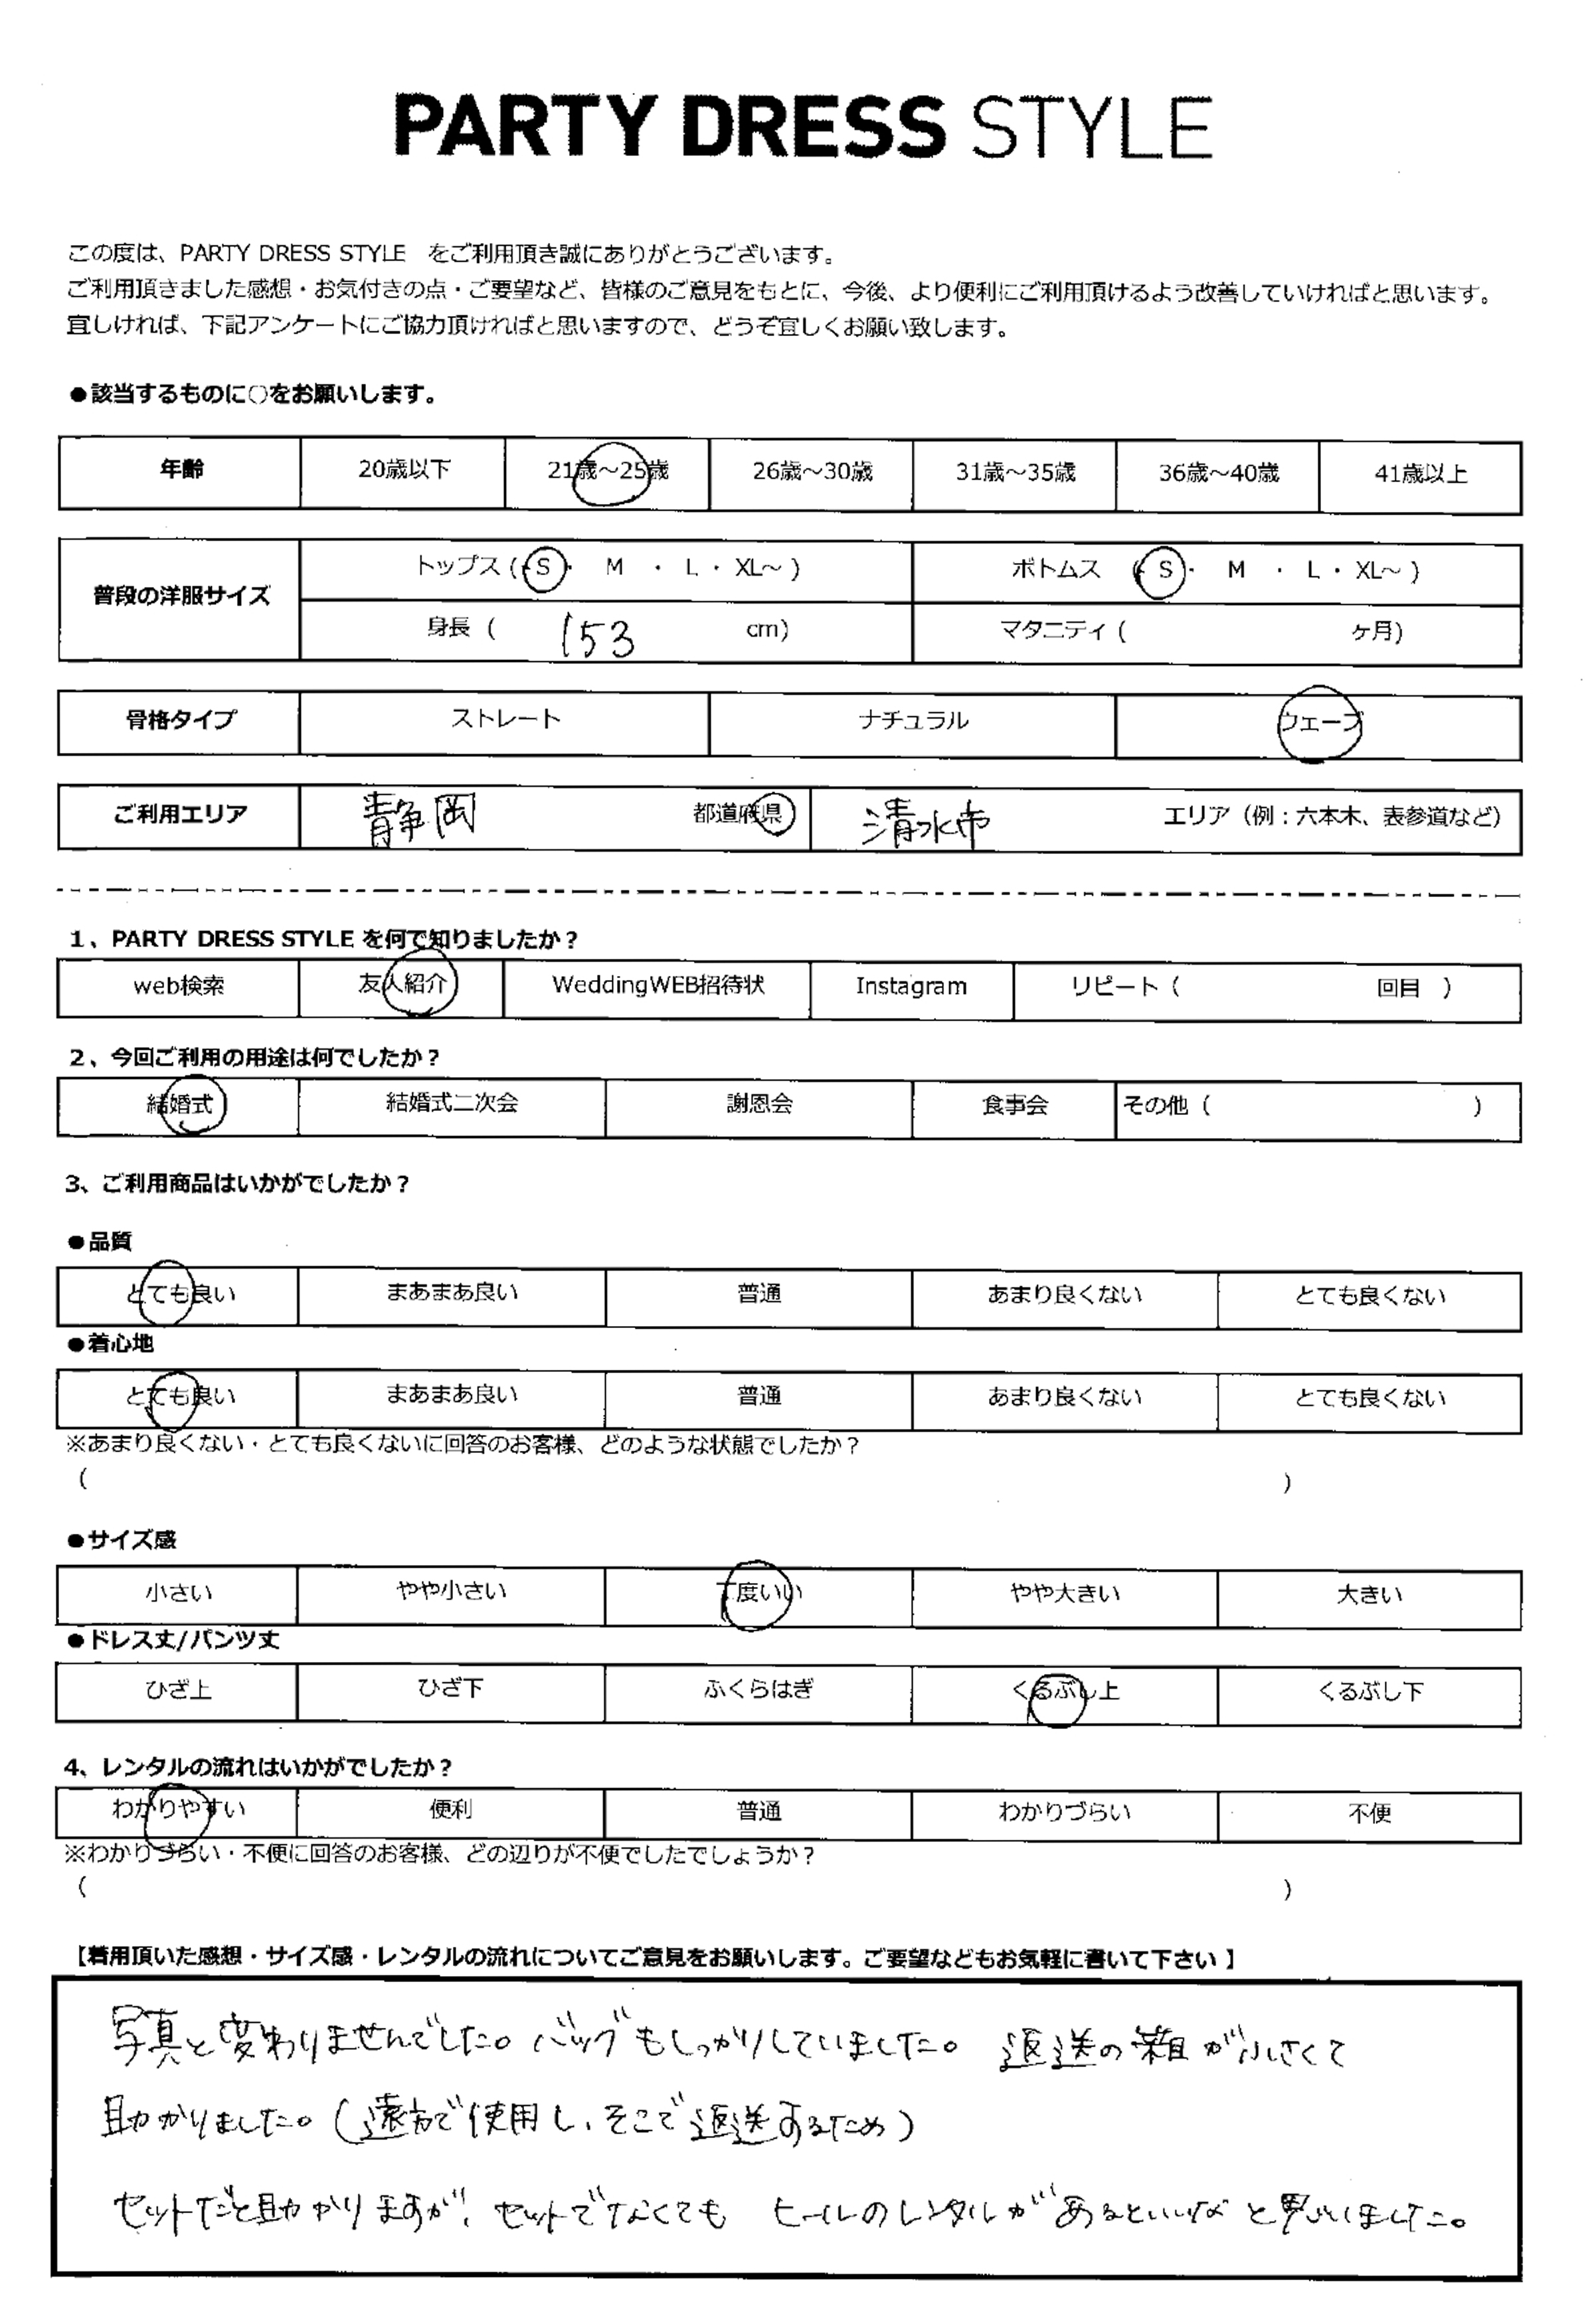 PARTY DRESS STYLE
この度は、PARTY DRESS STYLE をご利用頂き誠にありがとうございます。
ご利用頂きました感想・お気付きの点・ご要望など、皆様のご意見をもとに、今後、より便利にご利用頂けるよう改善していければと思います。
宜しければ、下記アンケートにご協力頂ければと思いますので、どうぞ宜しくお願い致します。
●該当するものに○をお願いします。
年齢 20歳以下 21歳～25歳 26歳～30歳 31歳～35歳 36歳～40歳 41歳以上
普段の洋服サイズ
トップス (・S・ M ・ L・ XL～ ) ボトムス (・S・ M ・ L・ XL～ )
身長 ( 153 cm) マタニティ ( ヶ月)
骨格タイプ ストレート ナチュラル ウェーブ
ご利用エリア 静岡 都道府県 清水市 エリア（例：六本木、表参道など）
1、PARTY DRESS STYLE を何で知りましたか？
web検索 友人紹介 WeddingWEB招待状 Instagram リピート（ 回目 ）
2、今回ご利用の用途は何でしたか？
結婚式 結婚式二次会 謝恩会 食事会 その他（ ）
3、ご利用商品はいかがでしたか？
●品質
とても良い まあまあ良い 普通 あまり良くない とても良くない
●着心地
とても良い まあまあ良い 普通 あまり良くない とても良くない
※あまり良くない・とても良くないに回答のお客様、どのような状態でしたか？
（ ）
●サイズ感
小さい やや小さい 丁度いい やや大きい 大きい
●ドレス丈/パンツ丈
ひざ上 ひざ下 ふくらはぎ くるぶし上 くるぶし下
4、レンタルの流れはいかがでしたか？
わかりやすい 便利 普通 わかりづらい 不便
※わかりづらい・不便に回答のお客様、どの辺りが不便でしたでしょうか？
（ ）
【着用頂いた感想・サイズ感・レンタルの流れについてご意見をお願いします。ご要望などもお気軽に書いて下さい 】
写真と変わりませんでした。バッグもしっかりしていました。 返送の箱が小さくて
助かりました。(遠方で使用し、そこで返送するため)
セットだと助かりますが、セットでなくても ヒールのレンタルがあるといいなと思いました。